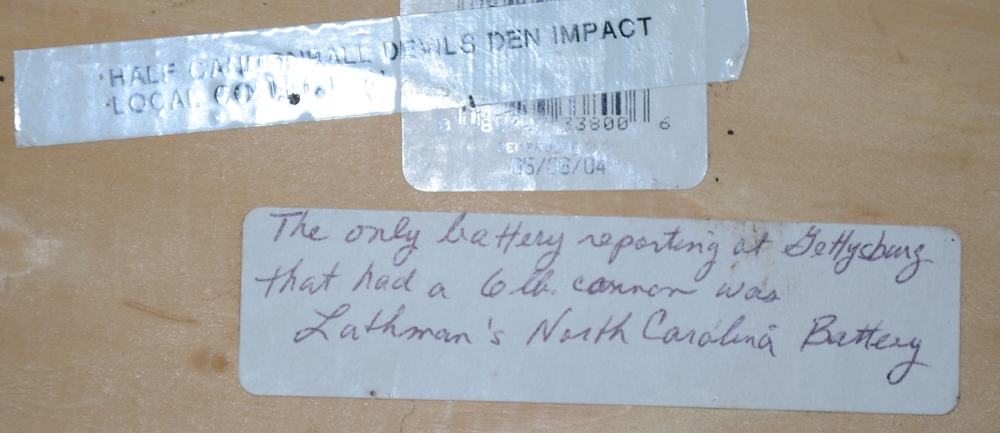 HALF CANNONBALL DEVILS DEN IMPACT
LOCAL
33800 6
04
The only battery reporting at Gettysburg
that had a 6 lb. cannon was
Lathman's North Carolina Battery